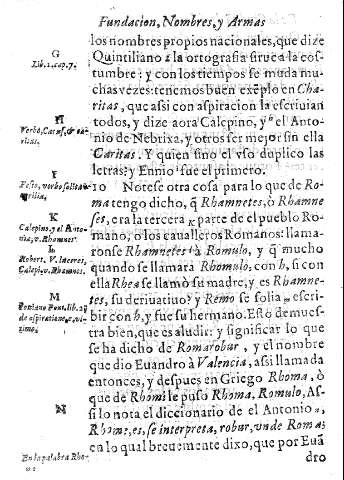 Fundacion, Nombres, y Armas
los nombres propios nacionales, que dize
G
Quintiliano a la ortografia sirue a la cos-
Lib. 1. cap. 7.
tumbre: y con los tiempos se muda mu-
chas vezes: tenemos buen exẽplo en Cha-
ritas, que assi con aspiracion la escriuian
H
todos, y dize aora Calepino, y el Anto-
Verbo, Carus, &
nio de Nebrixa, y otros ser mejor sin ella
Caritas. Y quien sino el vso duplico las
I
letras? y Ennio fue el primero.
Festo, verbo
10 Notese otra cosa para lo que de Ro-
K
ma tengo dicho, q̃ Rhamnetes, ò Rhamne
ses, era la tercera parte de el pueblo Ro-
Calepino, y el Anto-
nio, v. Rhamnes.
mano, ò los caualleros Romanos: llama-
L
ronse Rhamnetes à Romulo, y q̃ mucho
Robert. V.
Calepi. v. Rhamnes.
quando se llamara Rhomulo, con h, si con
ella Rhea se llamò su madre, y es Rhamne-
M
tes, su deriuatiuo? y Remo se solia escri-
Pontano Pont. lib. 2.
de aspiratione,
bir con h, y fue su hermano. Esto demues-
tra bien, que es aludir: y significar lo que
se ha dicho de Romarobur, y el nombre
que dio Euandro à Valencia, assi llamada
entonces, y despues en Griego Rhoma, ò
que de Rhomi le puso Rhoma, Romulo, As-
N
si lo nota el diccionario de el Antonio,
Rhome, es, se interpreta, robur, vnde Roma;
En la palabra Rho-
en lo qual breuemente dixo, que por Euã
dro